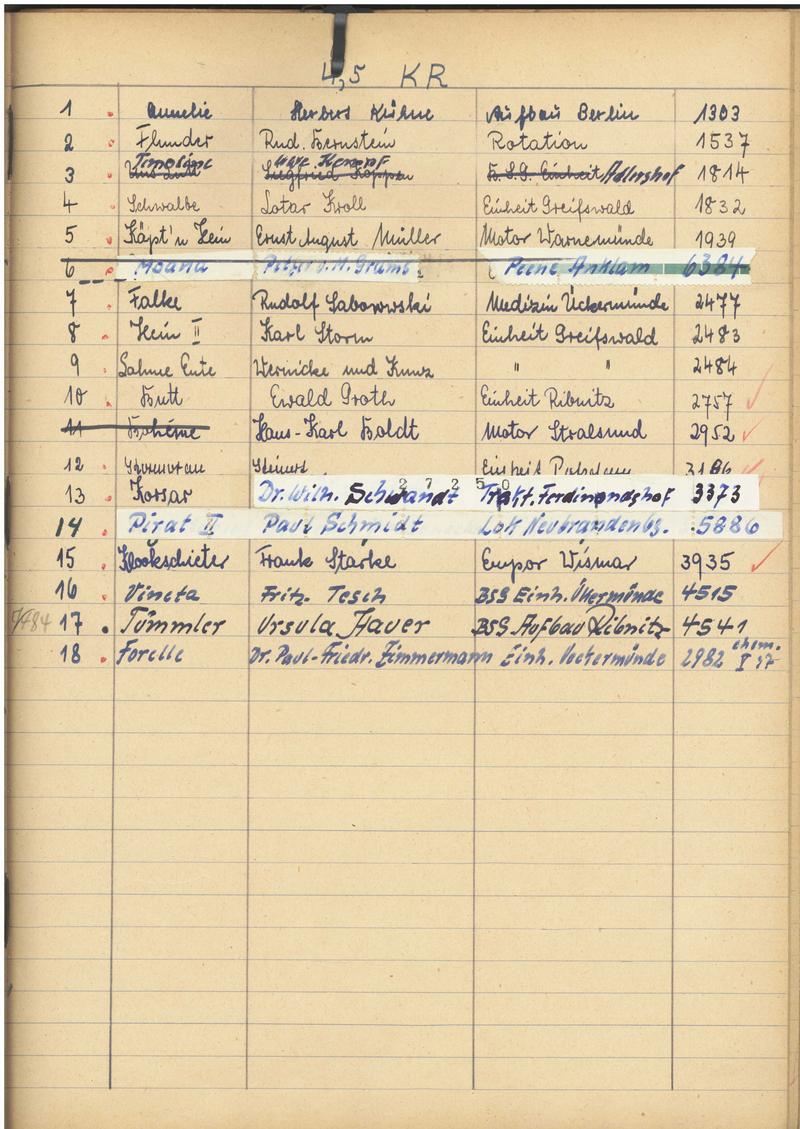 4,5 KR
1 Annelie Herbert Kühne Aufbau Berlin 1303
2 Flunder Rud. Bernstein Rotation 1537
3 Siegfried B.S.G. Einheit Adlershof 1814
4 Schwalbe Lotar Kroll Einheit Greifswald 1832
5 Käpt'n Hein Ernst August Müller Motor Warnemünde 1939
6 Moana Peene Anklam 6384
7 Falke Rudolf Saborowski Medizin Ückermünde 2477
8 Hein II Karl Storm Einheit Greifswald 2483
9 Lahme Ente Wernicke und Kunz " " 2484
10 Butt Ewald Groth Einheit Ribnitz 2757
11 Bohéme Hans-Karl Boldt Motor Stralsund 2952
12 Steinert Einheit Potsdam 3186
2 7 2 5 0
13 Korsar Dr. Wilh. Schwandt Trakt. Ferdinandshof 3373
14 Pirat II Paul Schmidt Lok Neubrandenbg. 5886
15 Klookschieter Frank Starke Empor Wismar 3935
16 Vineta Fritz Tesch BSG Einh. Ükermünde 4515
17 Tümmler Ursula Hauer BSG Aufbau Ribnitz 4541
18 Forelle Dr. Paul-Friedr. Zimmermann Einh. Ueckermünde 2982 ehem.